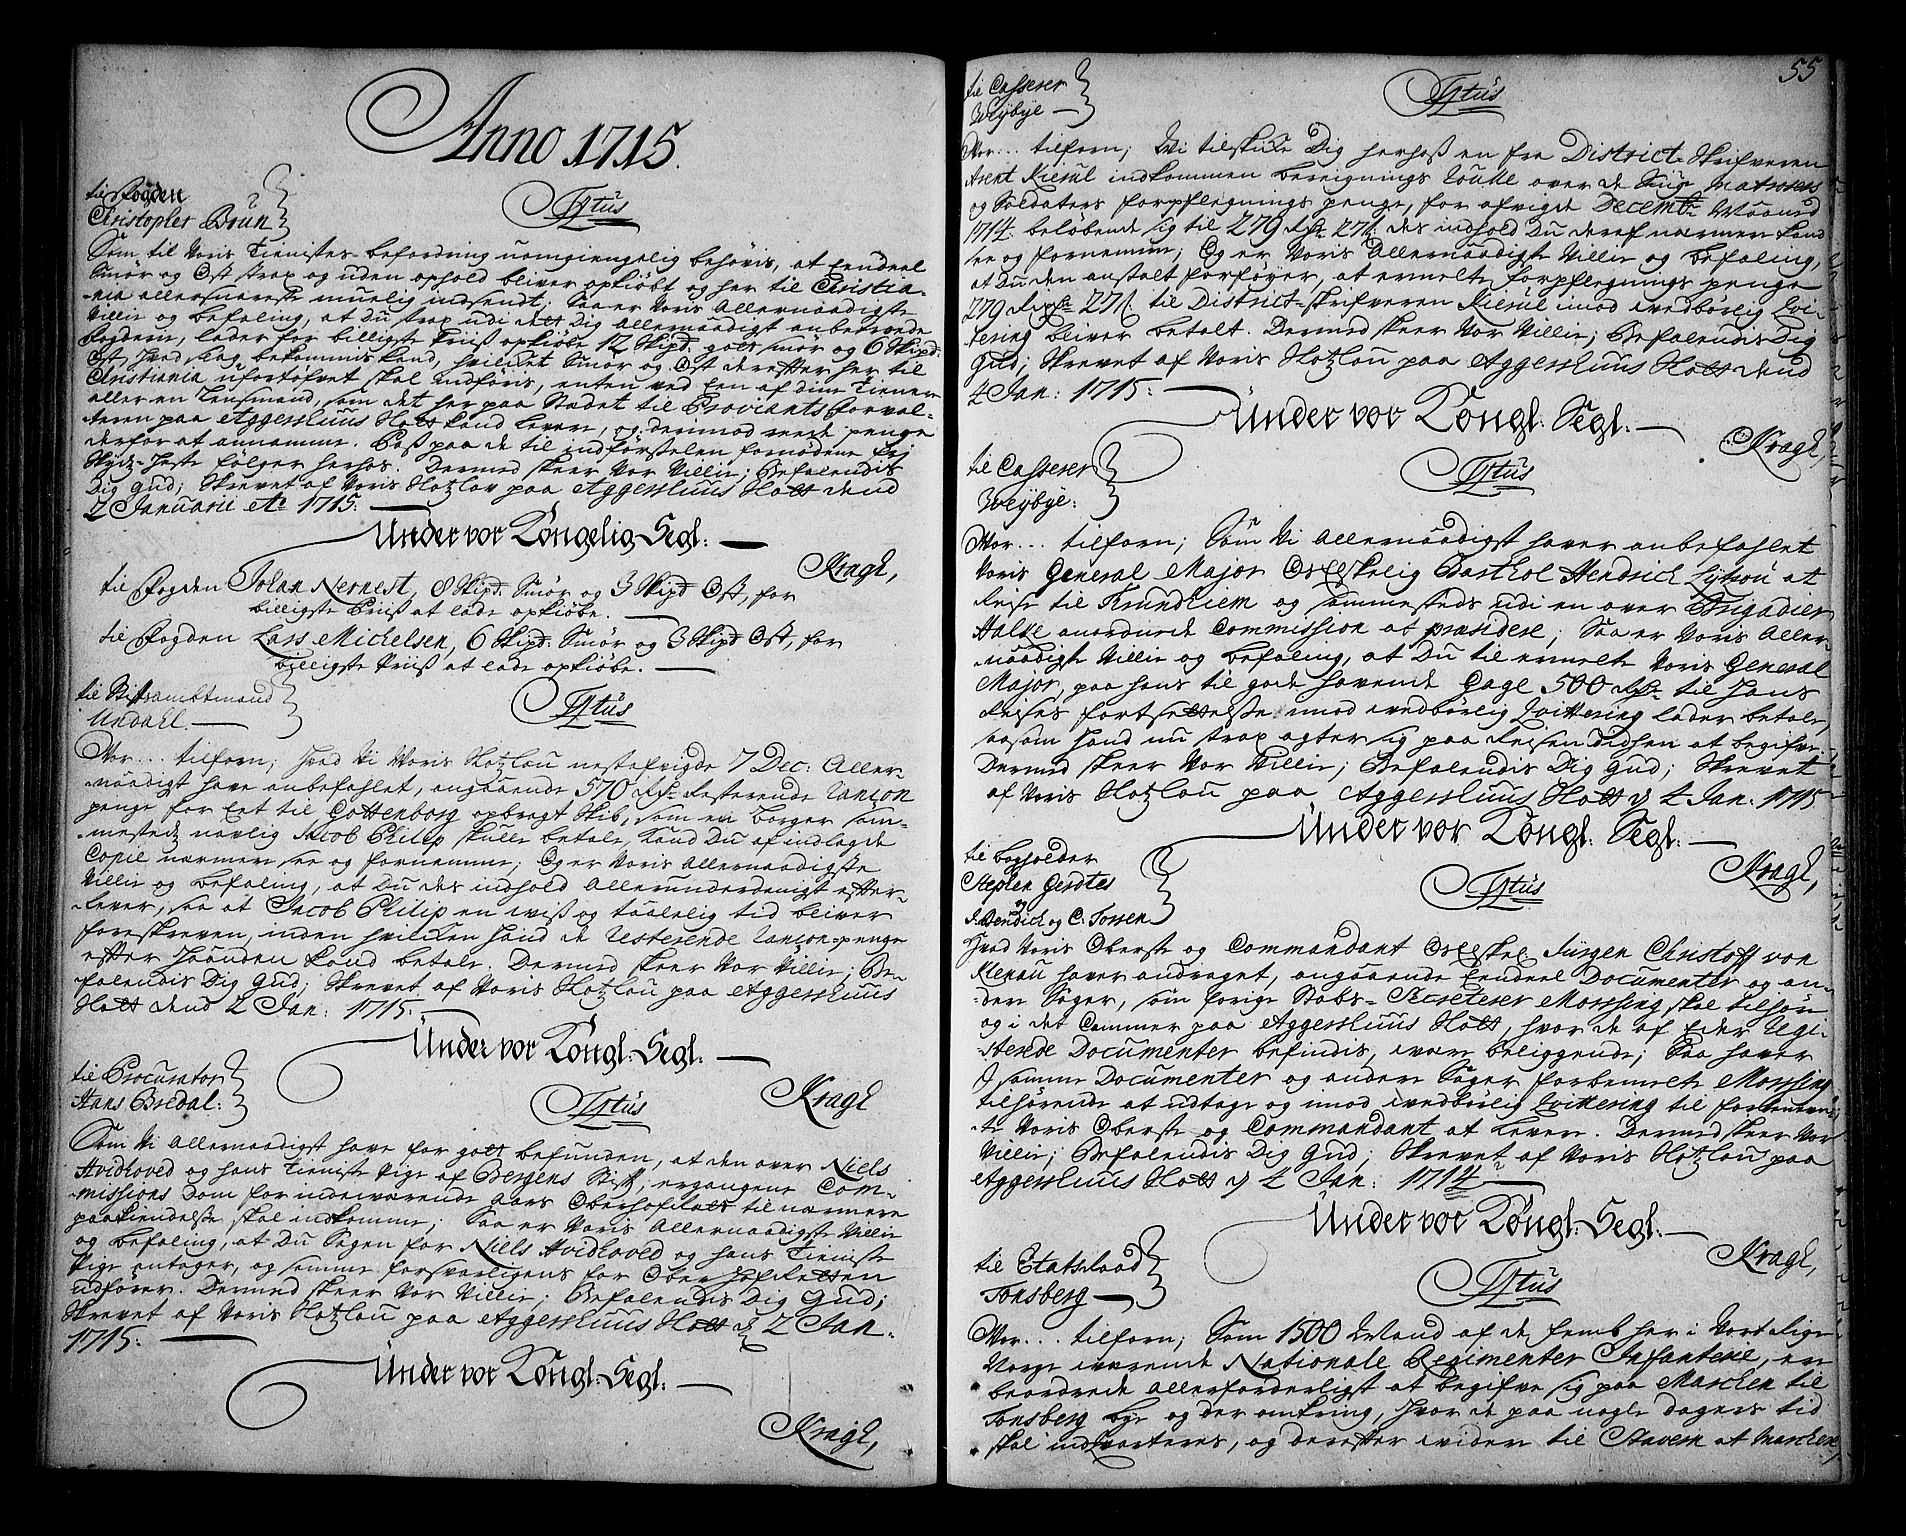 Anno 1715.
til fogden
Christopher Brun
Tytus
Som til Voris Tienistes befordring uomgiengelig behøvis, at Eendeel
Smør og Ost strax og uden ophold bliver opkiøbt og her til Christia-
nia allersnareste muelig indsendt; Saa er Voris Allernaadigste
Villie og befaling, at Du strax udi dett Dig Allernaadigst anbetroede
Fogderie, lader for billigste Priiß opkiøbe 12 Skipd. got smør og 6 Skipd:
Ost, hvad slag bekommis kand, hvilcket Smør og Ost derefter her til
Christiania ufortøfvet skal indføris, enten ved Een af dine Tiener
aller en Lensmand, som det her paa Stædet til Proviants Forval-
teren paa Aggershuus Slott kand levere, og derimod rede penge
derfor at annamme. Paß paa de til indførselen fornødene frj
Skyds-heste følger herhos. Dermed skeer Vor Villie; Befalendis
Dig Gud; Skrevet af Voris Slotzlov paa Aggershuus Slott dend
2 Januarii Ao 1715.
Under vor Kongelig Segl:
Kragh,
til Fogden Johan Nernest, 8 Skipd. Smør og 3 Skipd Ost, for
billigste Priiß at lade opkiøbe.
til Fogden Lars Michelsen, 6 Skipd: Smør og 3 Skipd Ost, for
billigste Priiß at lade opkiøbe.
til Stiftsambtmand
Undahl.
Tytus
Vor... tilforn; hvad Vi Voris Slotzlou nestafvigte 7 Dec: Aller-
naadigst have anbefahlet, angaaende 570 Rdr. Resterende Rancon
penge for Eet til Gottenborg opbragt Skib, som en borger sam-
mestedz navlig Jacob Philip skulle betale, kand Du af indlagde
Copie narmere see og fornemme; Og er Voris Allernaadigste
Villie og befaling, at Du des indhold Allerunderdanigst efter-
lever, saa at Jacob Philip en viß og taalelig tid bliver
foreskreven, inden hvilcken hand de Resterende Rancon-penge
efter haanden kand betale. Dermed skeer Vor Villie; Be-
falendis Dig Gud; Skrevet af Voris Slotzlou paa Aggershuus
Slott dend 2 Jan: 1715.
Under vor Kongl: Segl:
Kragh
til Procurator
Hans Bredal:
Tytus
Som Vi Allernaadigst have for gott befunden, at den over Niels
Hvidhoved og hans Tieniste Pige af Bergens Stift, ergangene Com-
missions Dom for indeværende Aars Oberhofrett til narmere
paakiendelse skal indkomme; Saa er Voris Allernaadigste Villie
og befaling, at Du Sagen for Niels Hvidhoved og hans Tieniste
Pige antager, og samme forsvarligens for Ober Hof Retten
udfører. Dermed skeer Vor Villie; Befalendis Dig Gud;
Skrevet af Voris Slotzlou paa Aggershuus Slott d 2 Jan.
1715.
Under vor Kongl: Segl:
Kragh,
55
til Casserer
Weybye
Tytus
Vor... tilforn; Vi tilskicke Dig herhoß en fra District-Skrifveren
Arent Kierul indkommen bereignings Roulle over de Syge matroser
og Soldaters forpflegnings penge, for afvigte Decembr: Maaned
1714. beløbende sig til 279 Rdr. 27 s. des indhold Du deraf narmere kand
see og fornemme; Og er Voris Allernaadigste Villie og befaling,
at Du den anstalt forføyer, at ermelte Forpflegnings penge
279 Rdr. 27 s. til District-skrifveren Kierul imod vedbørlig Qvi-
tering bliver betalt. Dermed skeer Vor Villie; Befalendis Dig
Gud; Skrevet af Voris Slotzlou paa Aggershuus Slott dend
4 Jan: 1715:
Under vor Kongl. Segl.
Kragh,
til Casserer
Weybye:
Tytus
Vor... tilforn; Som Vi Allernaadigst haver anbefahlet
Voris General Major Os Elskelig Barthol Hendrich Lÿtzou at
Reise til Trundhiem og sammesteds udi en over Brigadier
Halke anordnede Commission at præsidere; Saa er Voris Aller-
naadigste Villie og befaling, at Du til ermelte Voris General
Major, paa hans til gode havende Gage 500 Rdr. til Hans
Reises fortsettelse imod vedbørlig Qvittering lader betale,
saasom Hand nu strax agter sig paa Reisen didhen at begifve.
Dermed skeer Vor Villie; Befalendis Dig Gud; Skrevet
af Voris Slotzlou paa Aggershuus Slott d 4 Jan. 1715
Under vor Kongl: Segl:
Kragh,
til bogholder
Stephen Gerdtes
og
J. Bendich og C: Torsen
Tytus
Hvad Voris Oberste og Commandant Os Elskel. Jürgen Christoff von
Klenau haver andraget, angaaende Eendeel Documenter og an-
dere Sager, som forige Stabs-Secreterer Morssing skal tilhøre
og i det Cammer paa Aggershuus Slott, hvor de af Eder Regi-
sterede Documenter befindis, være beliggende; Saa haver
I samme Documenter og andere Sager forbemelte Morssing
tilhørende at udtage og imod vedbørlig Qvittering til forbemel-
te Voris Oberste og Commandant at levere. Dermed skeer Vor
Villie; Befalendis Dig Gud; Skrevet af Voris Slotzlou paa
Aggershuus Slott d 4 Jan: 1714
Under vor Kongl: Segl:
Kragh,
til Etatsraad
Tonsberg
Tytus
Vor... tilforn; Som 1500 Mand af de femb her i Vort Rige
Norge værende Nationale Regimenter Infanterie, er
beordrede Allerforderligst at begifve sig paa Marchen til
Tonsberg bye og der omkring, hvor de paa nogle dagers tid
skal indqvarteres, og derefter videre til Stavern at marchere,